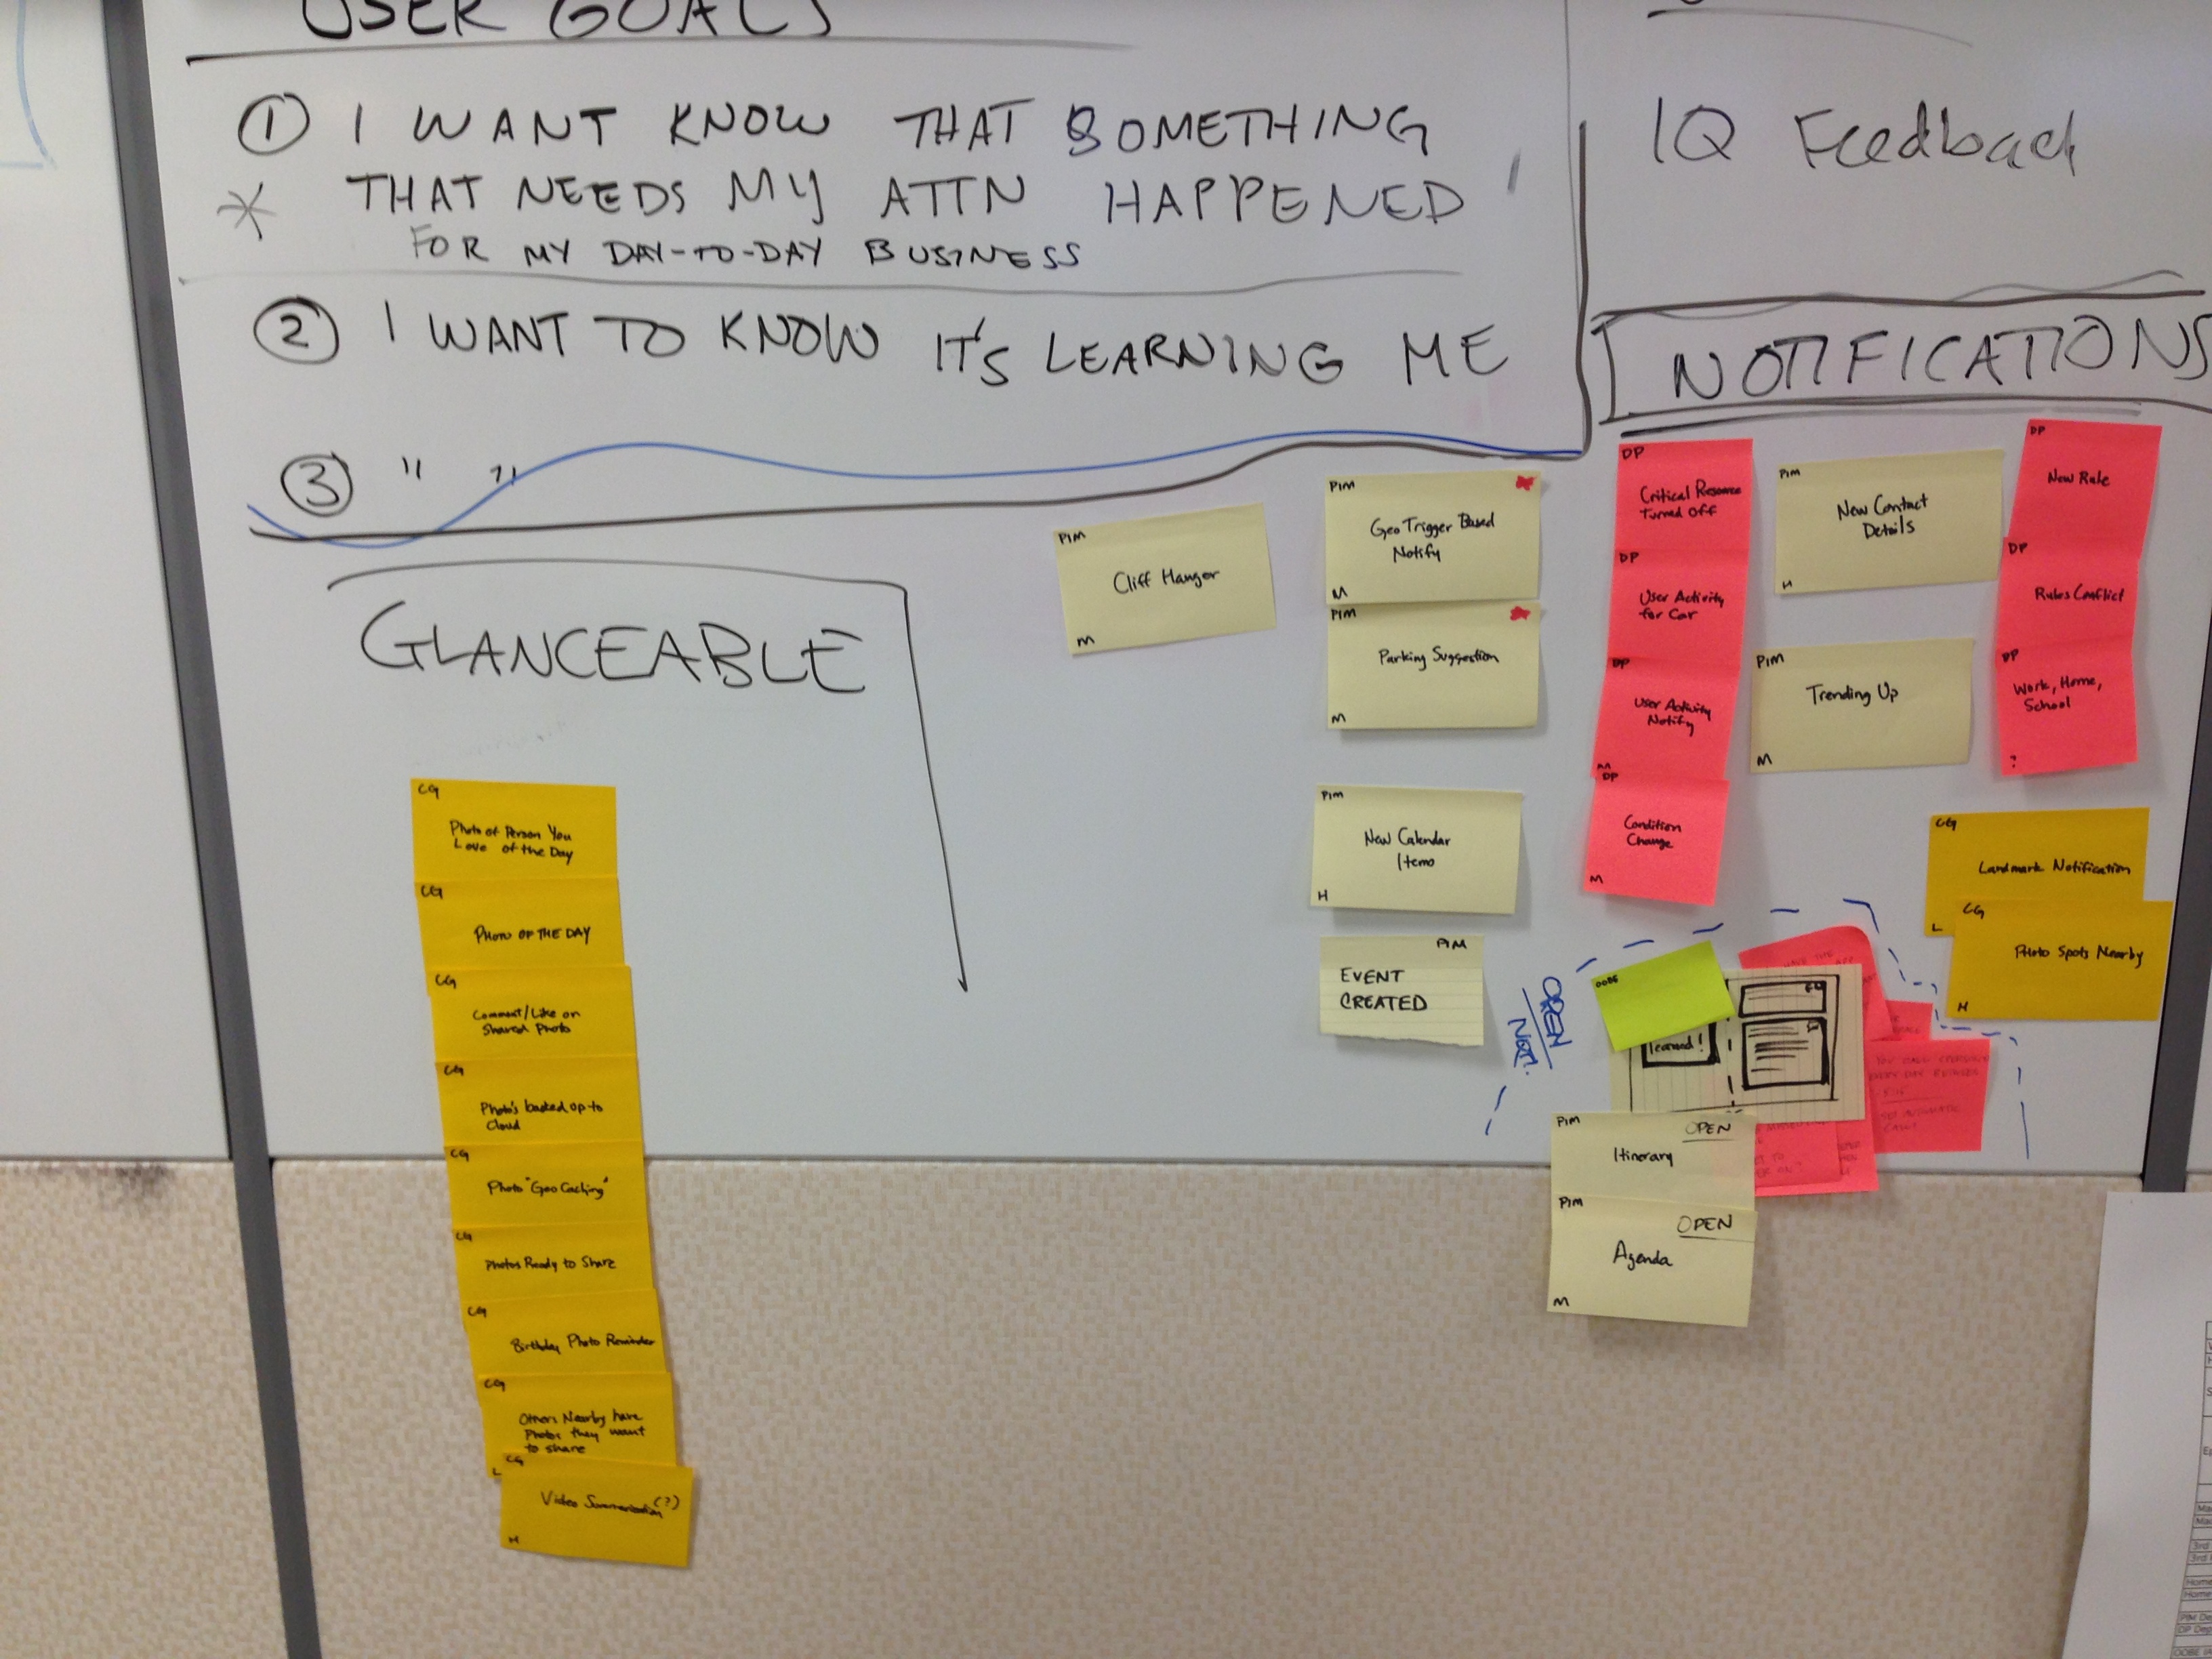 USER GOALS
① I WANT KNOW THAT SOMETHING
* THAT NEEDS MY ATTN HAPPENED
FOR MY DAY-TO-DAY BUSINESS
② I WANT TO KNOW IT'S LEARNING ME
③ " "
IQ Feedback
NOTIFICATIONS
GLANCEABLE
CG
Photo of Person You
Love of the Day
CG
PHOTO OF THE DAY
CG
Comment/Like on
Shared Photo
CG
Photo's backed up to
Cloud
CG
Photo "Geo Caching"
CG
Photos Ready to Share
CG
Birthday Photo Reminder
CG
Others Nearby have
Photos they want
to share
L
CG
Video Summarization (?)
H
PIM
Cliff Hanger
M
PIM
Geo Trigger Based
Notify
M
PIM
Parking Suggestion
M
PIM
New Calendar
Items
H
PIM
EVENT
CREATED
DP
Critical Resource
Turned Off
DP
User Activity
for Car
DP
User Activity
Notify
M
DP
Condition
Change
M
PIM
New Contact
Details
H
PIM
Trending Up
M
DP
New Rule
DP
Rules Conflict
DP
Work, Home,
School
?
CG
Landmark Notification
L
CG
Photo Spots Nearby
H
OPEN
NOT.
OOBE
learned!
PIM
OPEN
Itinerary
PIM
OPEN
Agenda
M
EVERY DAY
SET AUTOMATIC
3rd
3rd
Home
Home
PIM De
DP Dep